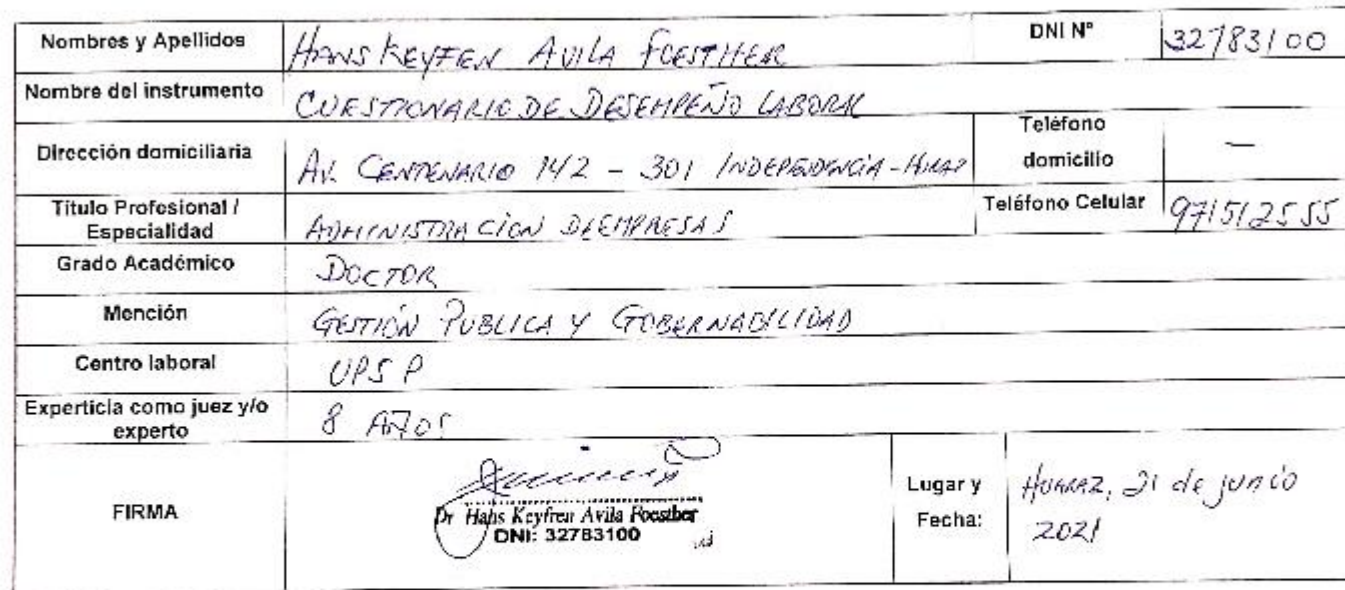 Nombres y Apellidos HANS KEYFREN AVILA FOESTHER DNI N° 32783100
Nombre del instrumento CUESTIONARIO DE DESEMPEÑO LABORAL
Dirección domiciliaria AV. CENTENARIO 142 - 301 INDEPENDENCIA - Teléfono domicilio —
Título Profesional / Especialidad ADMINISTRACION DE EMPRESAS Teléfono Celular 971512555
Grado Académico DOCTOR
Mención GESTIÓN PUBLICA Y GOBERNABILIDAD
Centro laboral UPSP
Experticia como juez y/o experto 8 AÑOS
FIRMA
Dr. Hans Keyfren Avila Foesther
DNI: 32783100
Lugar y Fecha: HUARAZ, 21 de junio 2021